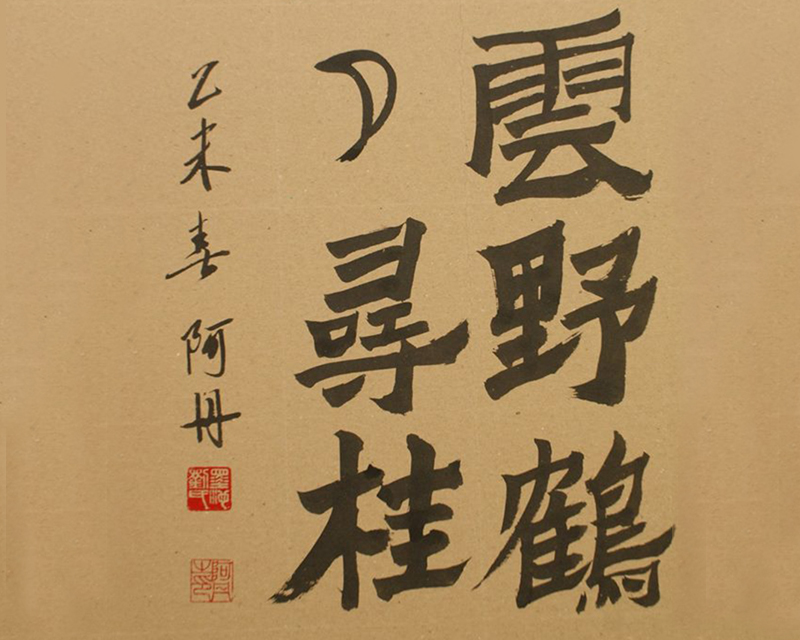 雲野鶴
月尋桂
乙未春 阿丹